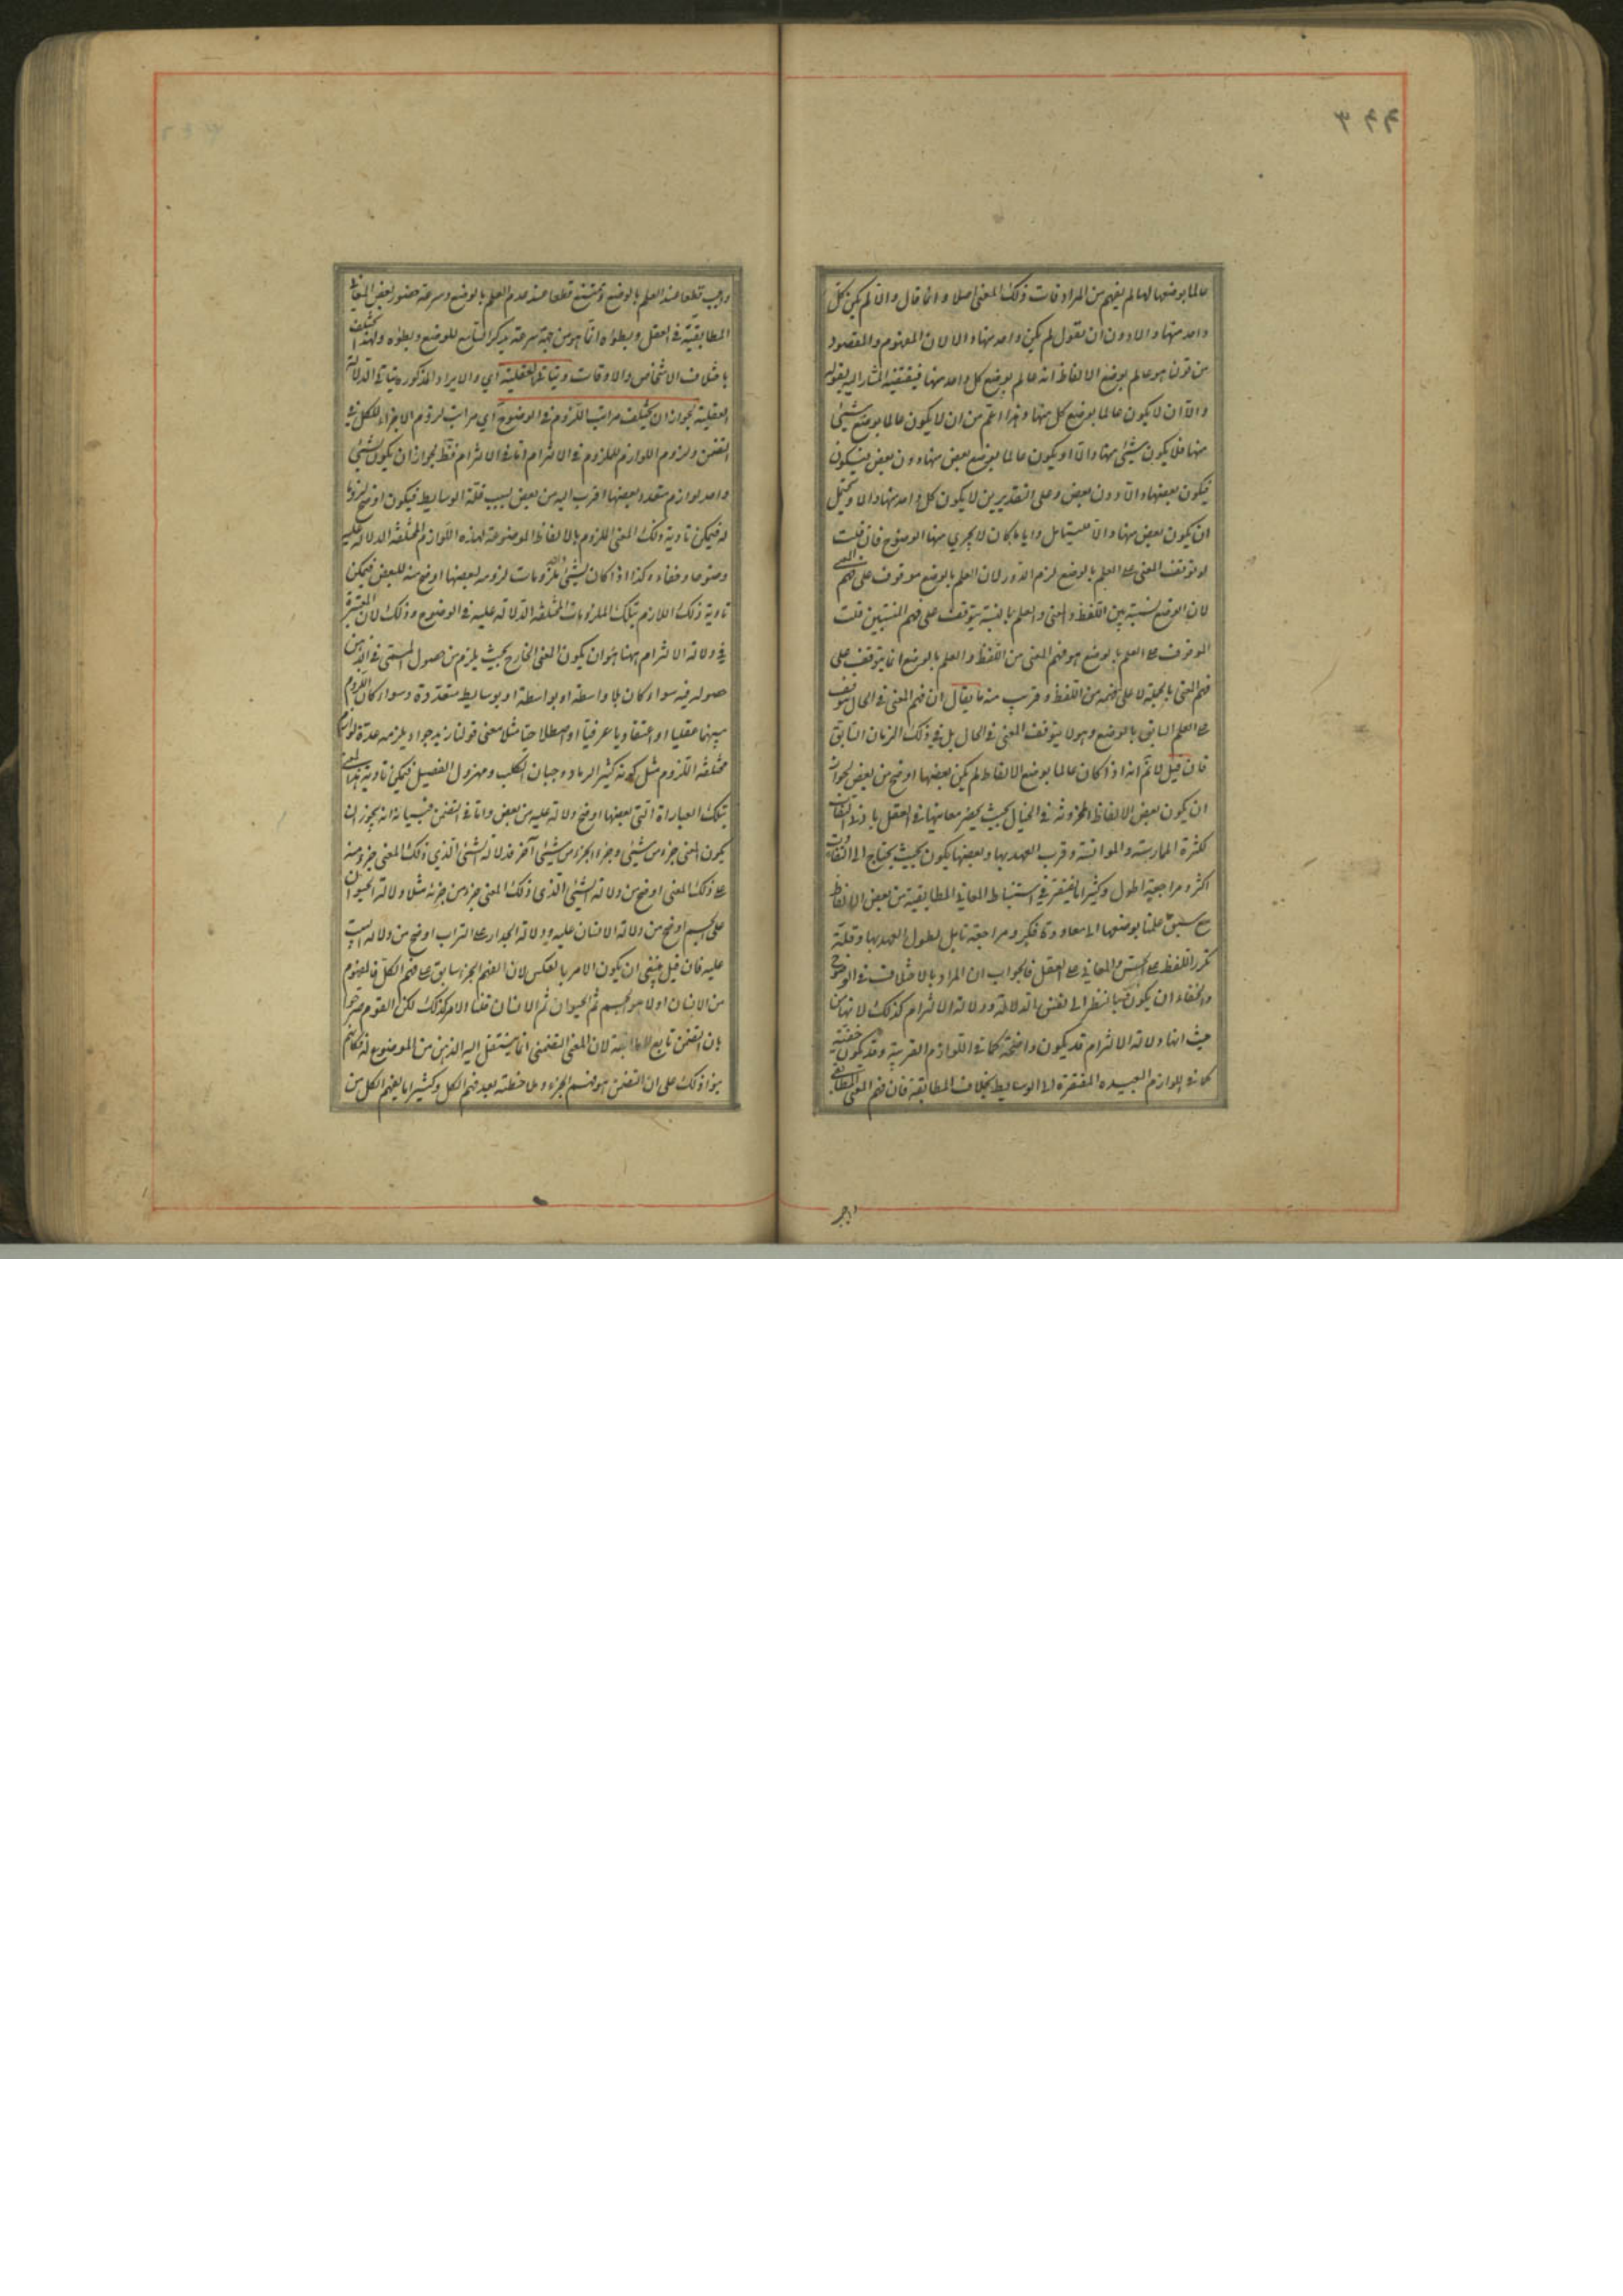 ۳۹۹
عالما بوضعها لها لم يفهم من المرادفات ذلك المعنى اصلا و انما قال والا لم يكن كل
واحد منها دالا دون ان يقول لم يكن واحد منها دالا لان المفهوم والمقصود
من قولنا هو عالم بوضع الالفاظ انه عالم بوضع كل واحد منها فنقيضه المشار اليه بقوله
والا ان لا يكون عالما بوضع كل منها وهذا اعم من ان لا يكون عالما بوضع شيئ
منها فلا يكون شيئ منها دالا او يكون عالما بوضع بعض منها دون بعض فيكون
فيكون بعضها دالا دون بعض وعلى التقديرين لا يكون كل واحد منها دالا ويحتمل
ان يكون بعض منها دالا فليتامل وايا ما كان لا يجري منها الوضوح فان قلت
لو توقف المعنى على العلم بالوضع لزم الدور لان العلم بالوضع موقوف على فهم المعنى
لان الوضع نسبة بين اللفظ والمعنى والعلم بالنسبة يتوقف على فهم المنتسبين قلت
الموقوف على العلم بالوضع هو فهم المعنى من اللفظ والعلم بالوضع انما يتوقف على
فهم المعنى بالجملة لا على فهمه من اللفظ وقريب منه ما يقال ان فهم المعنى في الحال يتوقف
على العلم السابق بالوضع وهو لا يتوقف المعنى في الحال بل في ذلك الزمان السابق
فان قيل لا نم انه اذا كان عالما بوضع الالفاظ لم يكن بعضها اوضح من بعض لجواز
ان يكون بعض الالفاظ المخزونة في الخيال بحيث يحضر معانيها في العقل بادنى التفات
لكثرة الممارسة والموانسة وقرب العهد بها وبعضها يكون بحيث يحتاج الى التفات
اكثر ومراجعة اطول وكثيرا ما نفتقر في استنباط المعاني المطابقية من بعض الالفاظ
مع سبق علمنا بوضعها الى معاودة فكر ومراجعة تامل لطول العهد بها وقلة
تكرر اللفظ على الحس والمعاني على العقل فالجواب ان المراد بالاختلاف في الوضوح
والخفاء ان يكون بالنظر الى نفس الدلالة ودلالة الالتزام كذلك لانها من
حيث انها دلالة الالتزام قد يكون واضحة كما في اللوازم القريبة وقد يكون خفية
كما في اللوازم البعيده المفتقرة الى الوسايط بخلاف المطابقة فان فهم المعنى المطابقي
واجب
واجب قطعا عند العلم بالوضع وممتنع قطعا عند عدم العلم بالوضع وسرعة حضور بعض المعاني
المطابقية في العقل وبطؤه انما هو من جهة سرعة تذكر السامع للوضع وبطؤه ولهذا يختلف
باختلاف الاشخاص والاوقات ويتاتى بالعقلية اي والايراد المذكور يتاتى بالدلالة
العقلية لجواز ان يختلف مراتب اللزوم في الوضوح اي مراتب لزوم الاجزاء للكل في
التضمن ولزوم اللوازم للملزوم في الالتزام اما في الالتزام فظ لجواز ان يكون لشيئ
واحد لوازم متعدد بعضها اقرب اليه من بعض بسبب قلة الوسايط فيكون اوضح لزوما
له فيمكن تادية ذلك المعنى الملزوم بالالفاظ الموضوعة لهذه اللوازم المختلفة الدلالة عليه
وضوحا وخفاء وكذا اذا كان لشيئ واحد ملزومات لزومه لبعضها اوضح منه للبعض فيمكن
تادية ذلك اللازم بتلك الملزومات المختلفة الدلالة عليه في الوضوح وذلك لان المعتبرة
في دلالة الالتزام ههنا هو ان يكون المعنى الخارج بحيث يلزم من حصول المسمى في الذهن
حصوله فيه سواء كان بلا واسطة او بواسطة او بوسايط متعددة وسواء كان اللزوم
بينهما عقليا او اعتقاديا عرفيا او اصطلاحيا مثلا معنى قولنا زيد جواد يلزمه عدة لوازم
مختلفة اللزوم مثل كونه كثير الرماد وجبان الكلب ومهزول الفصيل فيمكن تادية هذا المعنى
بتلك العبارات التي بعضها اوضح دلالة عليه من بعض واما في التضمن فبيانه انه يجوز ان
يكون المعنى جزء من شيئ وجزء الجزء من شيئ آخر فدلالة الشيئ الذي ذلك المعنى جزء منه
على ذلك المعنى اوضح من دلالة الشيئ الذي ذلك المعنى جزء من جزئه مثلا دلالة الحيوان
على الجسم اوضح من دلالة الانسان عليه ودلالة الجدار على التراب اوضح من دلالة البيت
عليه فان قيل ينبغي ان يكون الامر بالعكس لان الفهم الجزء سابق على فهم الكل فالمفهوم
من الانسان اولا هو الجسم ثم الحيوان ثم الانسان قلنا الامر كذلك لكن القوم صرحوا
بان التضمن تابع للمطابقة لان المعنى التضمني انما ينتقل اليه الذهن من الموضوع له فكانهم
بنوا ذلك على ان التضمن هو فهم الجزء وملاحظته بعد فهم الكل وكثيرا ما يفهم الكل من